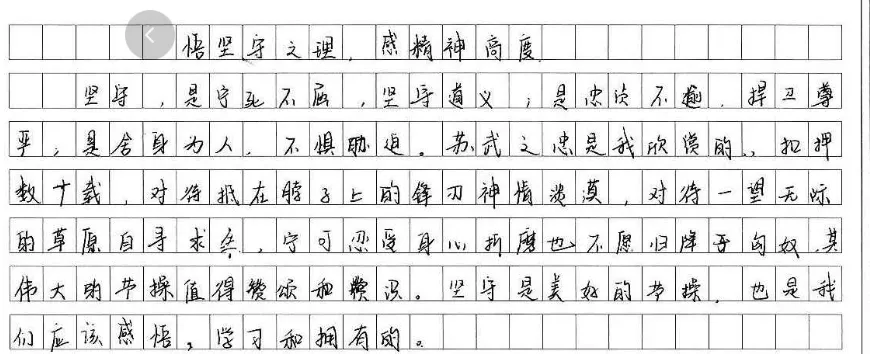 悟坚守之理，感精神高度
坚守，是宁死不屈，坚守道义；是忠贞不渝，捍卫尊
严；是舍身为人，不惧胁迫。苏武之忠是我欣赏的，扣押
数十载，对待抵在脖子上的锋刃神情淡漠，对待一望无际
的草原自寻求生，宁可忍受身心折磨也不愿归降于匈奴，其
伟大的节操值得赞颂和赞叹。坚守是美好的节操，也是我
们应该感悟，学习和拥有的。